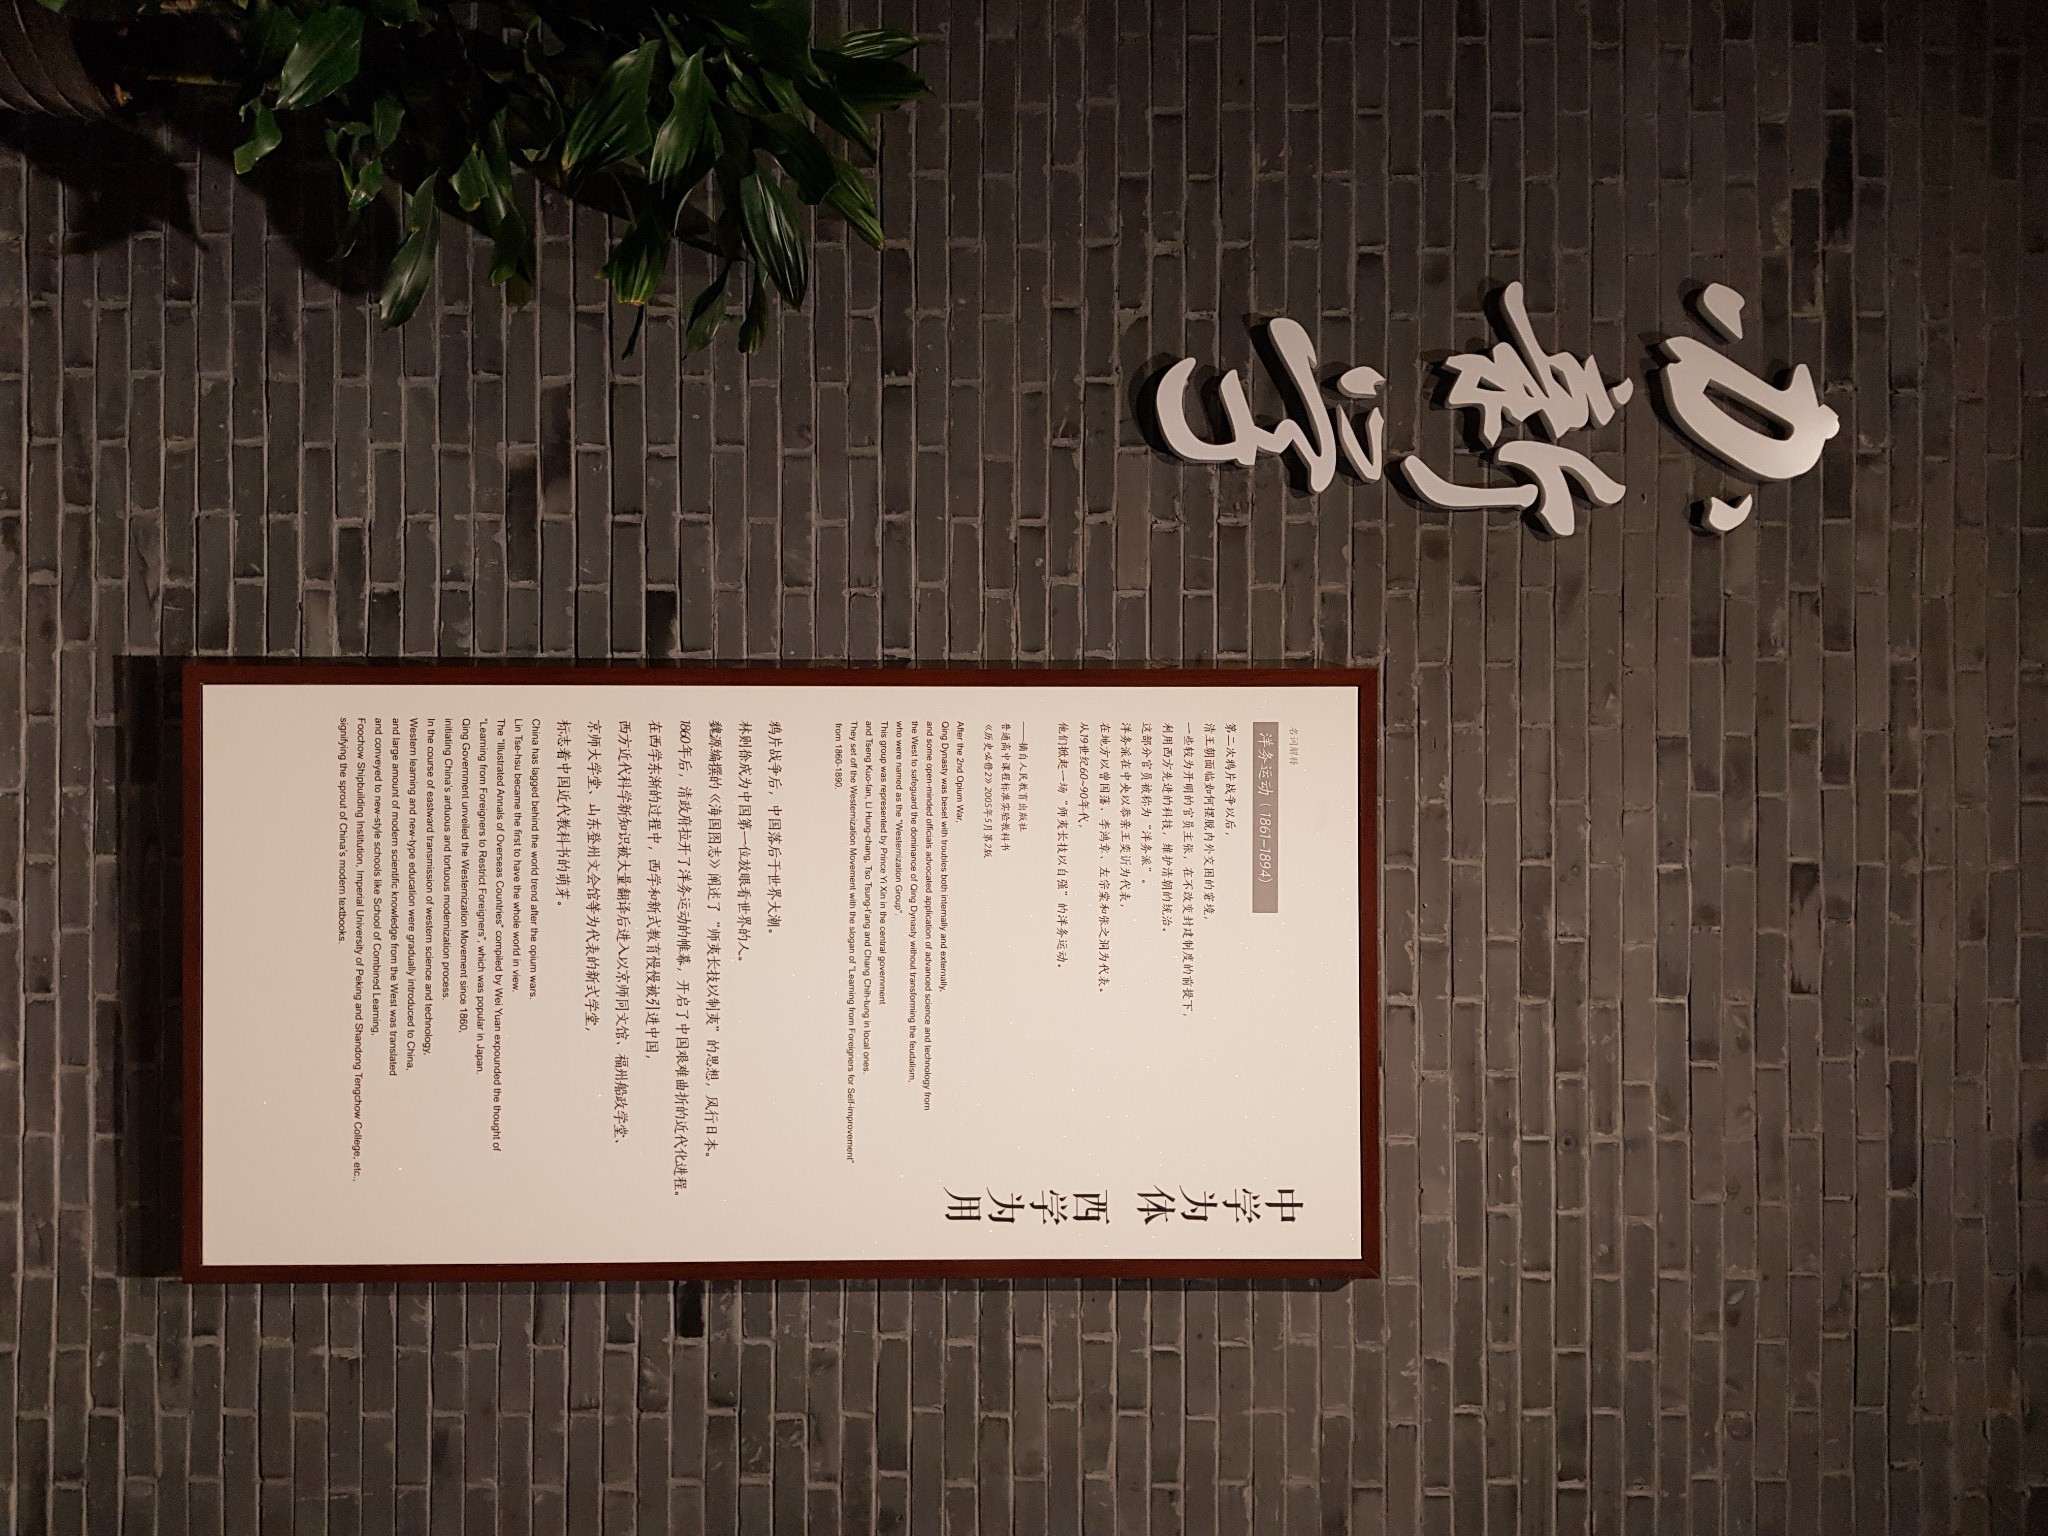 办
新
学
名词解释
洋务运动 (1861-1894)
第二次鸦片战争以后，
清王朝面临如何摆脱内外交困的窘境，
一些较为开明的官员主张，在不改变封建制度的前提下，
利用西方先进的科技，维护清朝的统治。
这部分官员被称为“洋务派”。
洋务派在中央以恭亲王奕訢为代表，
在地方以曾国藩、李鸿章、左宗棠和张之洞为代表。
从19世纪60-90年代，
他们掀起一场“师夷长技以自强”的洋务运动。
——摘自人民教育出版社
普通高中课程标准实验教科书
《历史必修2》2005年5月第2版
After the 2nd Opium War,
Qing Dynasty was beset with troubles both internally and externally,
and some open-minded officials advocated application of advanced science and technology from
the West to safeguard the dominance of Qing Dynasty without transforming the feudalism,
who were named as the "Westernization Group".
This group was represented by Prince Yi Xin in the central government
and Tseng Kuo-fan, Li Hung-chang, Tso Tsung-t'ang and Chang Chih-tung in local ones.
They set off the Westernization Movement with the slogan of "Learning from Foreigners for Self-improvement"
from 1860-1890.
中学为体
西学为用
鸦片战争后，中国落后于世界大潮。
林则徐成为中国第一位放眼看世界的人。
魏源编撰的《海国图志》阐述了“师夷长技以制夷”的思想，风行日本。
1860年后，清政府拉开了洋务运动的帷幕，开启了中国艰难曲折的近代化进程。
在西学东渐的过程中，西学和新式教育慢慢被引进中国，
西方近代科学新知识被大量翻译后进入以京师同文馆、福州船政学堂、
京师大学堂、山东登州文会馆等为代表的新式学堂，
标志着中国近代教科书的萌芽。
China has lagged behind the world trend after the opium wars.
Lin Tse-hsu became the first to have the whole world in view.
The "Illustrated Annals of Overseas Countries" compiled by Wei Yuan expounded the thought of
"Learning from Foreigners to Restrict Foreigners", which was popular in Japan.
Qing Government unveiled the Westernization Movement since 1860,
initiating China's arduous and tortuous modernization process.
In the course of eastward transmission of western science and technology,
Western learning and new-type education were gradually introduced to China,
and large amount of modern scientific knowledge from the West was translated
and conveyed to new-style schools like School of Combined Learning,
Foochow Shipbuilding Institution, Imperial University of Peking and Shandong Tengchow College, etc.,
signifying the sprout of China's modern textbooks.